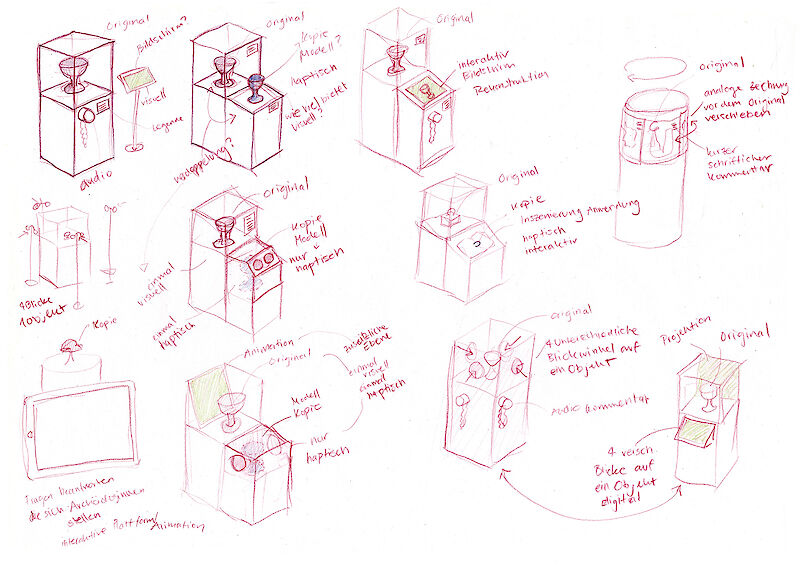 Original
Bildschirm?
visuell
Legende
audio
Original
Kopie
Modell?
haptisch
wie viel bietet
visuell?
verdoppelung?
Original
interaktiv
Bildschirm
Rekonstruktion
Original
analoge Zeichnung
vor dem Original
verschieben
kurzer
schriftlicher
Kommentar
4 Blicke
1 Objekt
Original
Kopie
Modell
nur
haptisch
einmal
visuell
einmal
haptisch
Original
Kopie
Inszenierung Anwendung
haptisch
interaktiv
Kopie
Fragen beantworten
die sich Archäologinnen
stellen
interaktive Plattform/
Animation
Animation
Original
zusätzliche
Ebene
einmal
visuell
einmal
haptisch
Modell
Kopie
nur
haptisch
original
4 unterschiedliche
Blickwinkel auf
ein Objekt
Audio Kommentar
Projektion
Original
4 versch.
Blicke auf
ein Objekt
digital